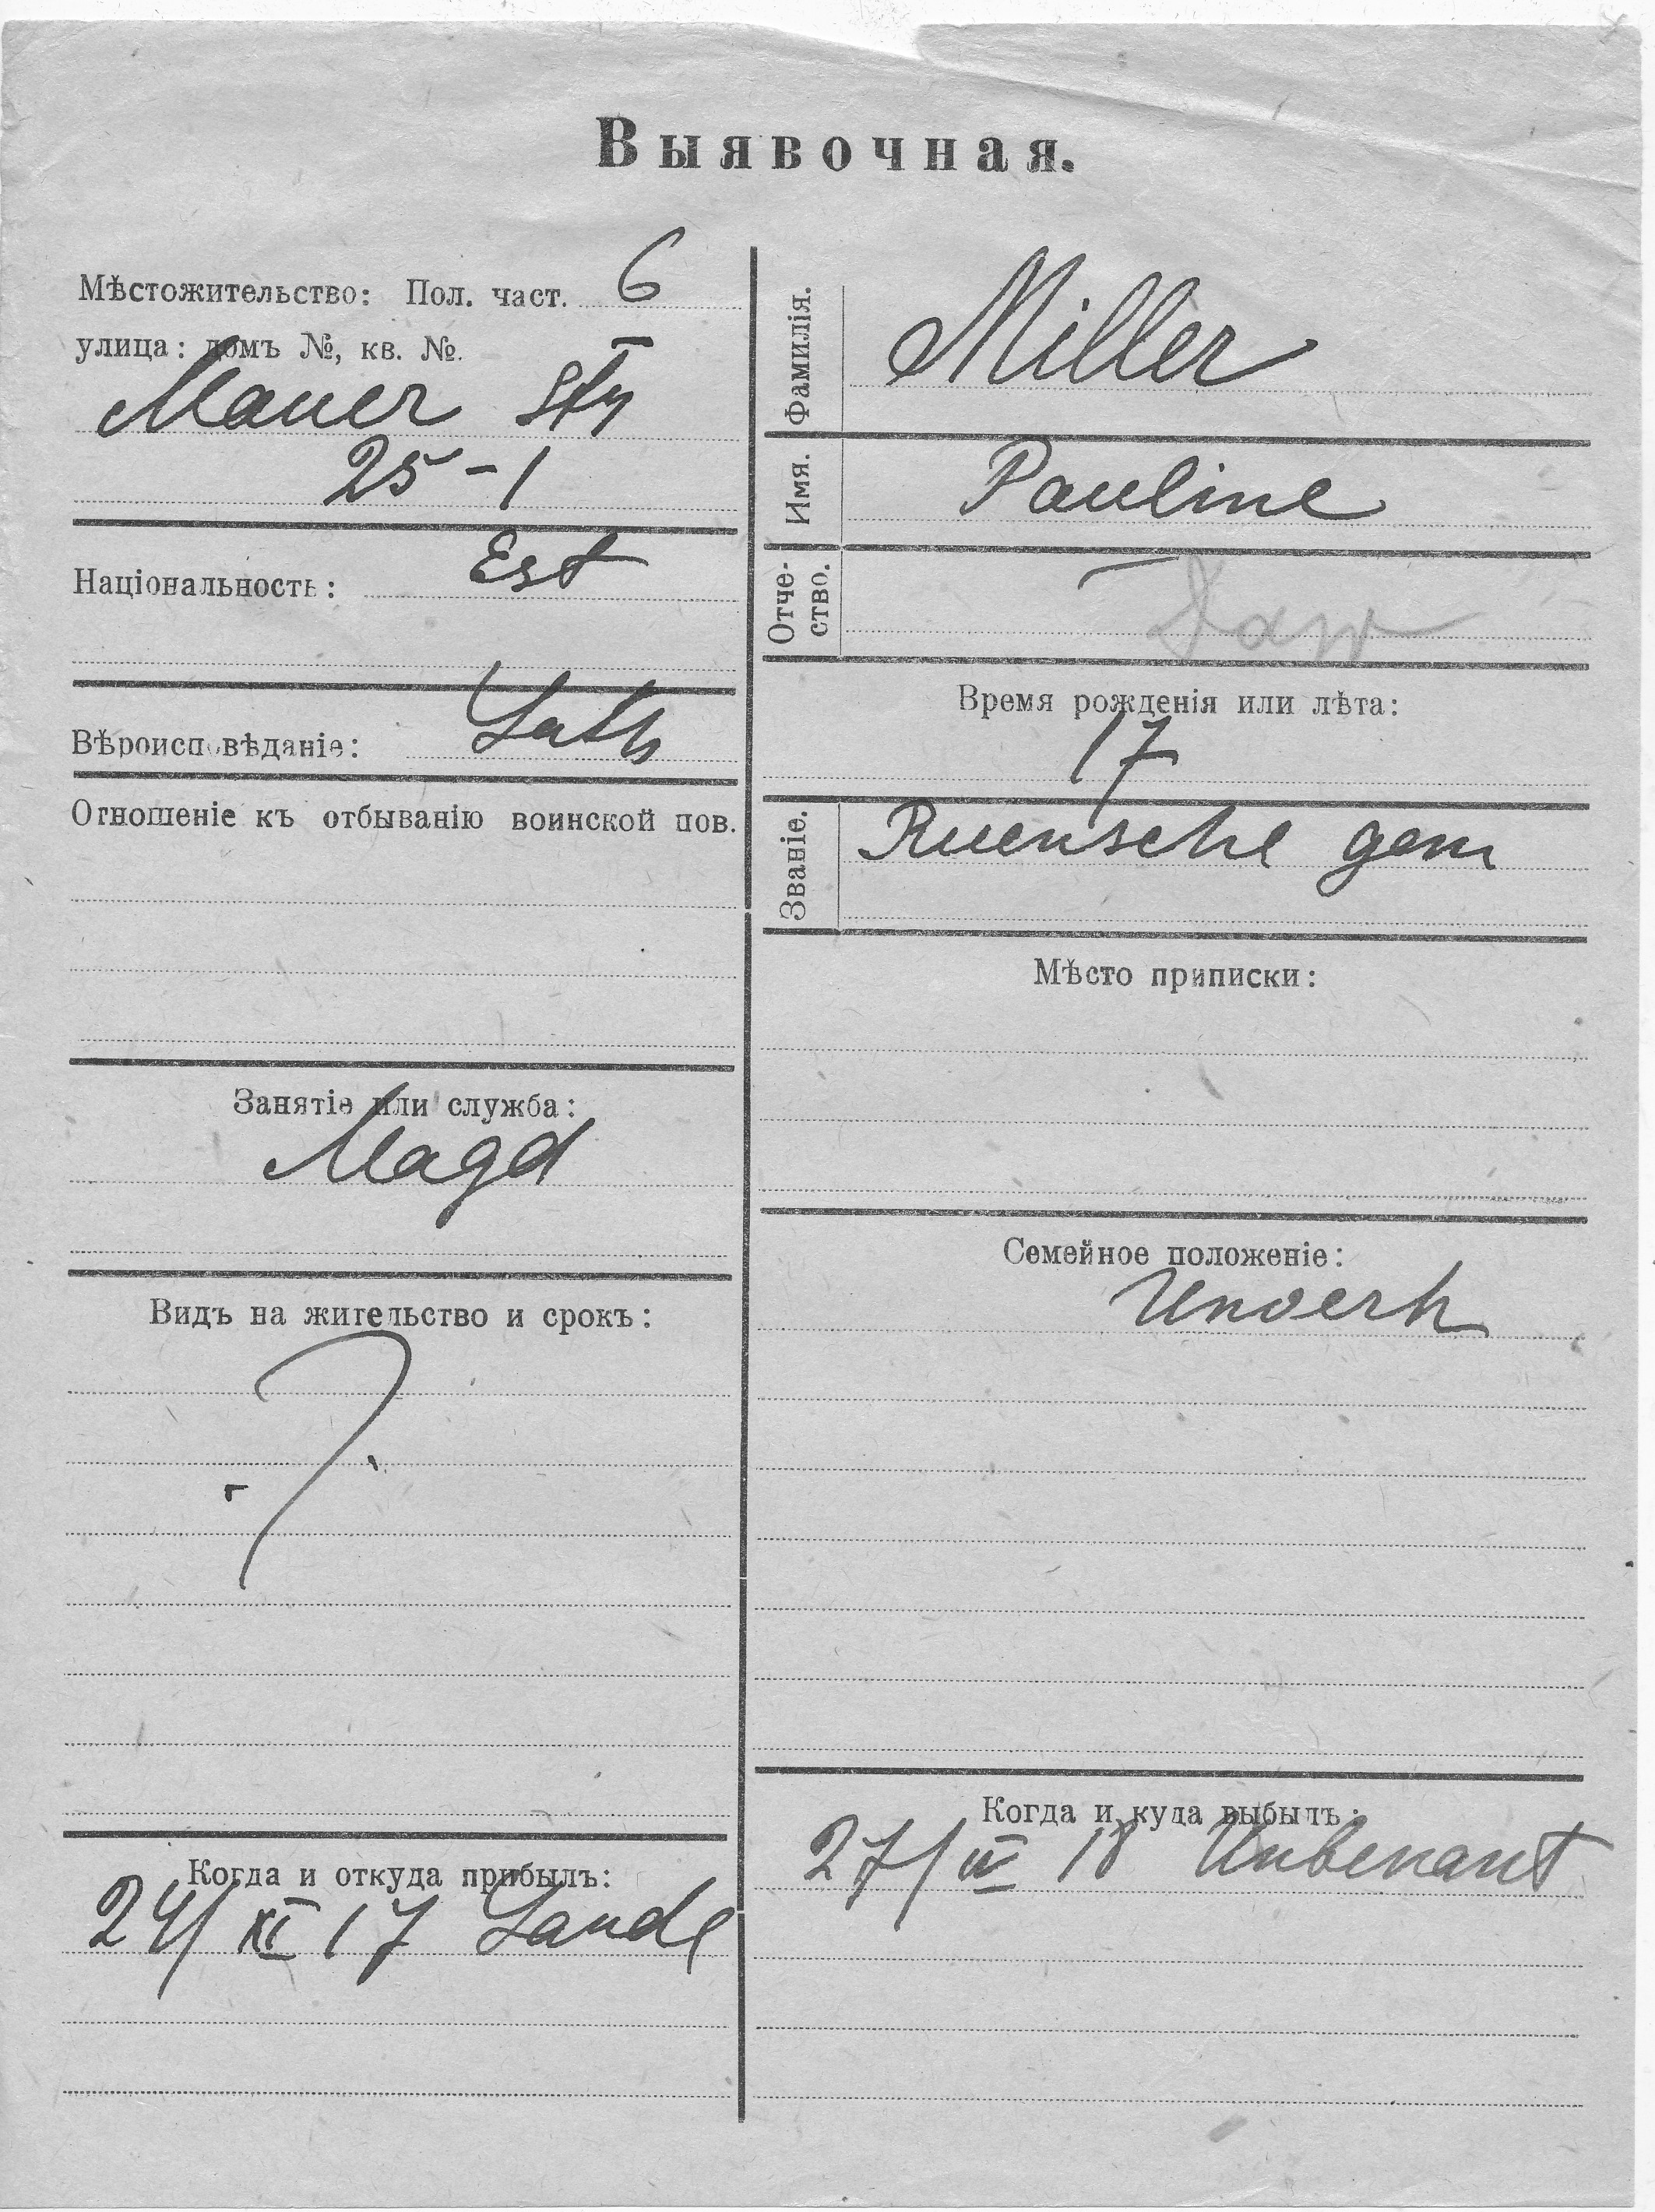 Выявочная.
Мѣстожительство: Пол. част. 6
улица: домъ №, кв. №.
Mauer Str
25 - 1
Національность: Est
Вѣроисповѣданіе: Luth
Отношеніе къ отбыванію воинской пов.
Занятіе или служба:
Magd
Видъ на жительство и срокъ:
?
Когда и откуда прибылъ:
24/XI 17 Lande
Фамилія. Miller
Имя. Pauline
Отче-
ство.
Время рожденія или лѣта:
17
Званіе. Ruensche gem
Мѣсто приписки:
Семейное положеніе:
Unverh
Когда и куда выбылъ:
27/IV 18 Unbekannt